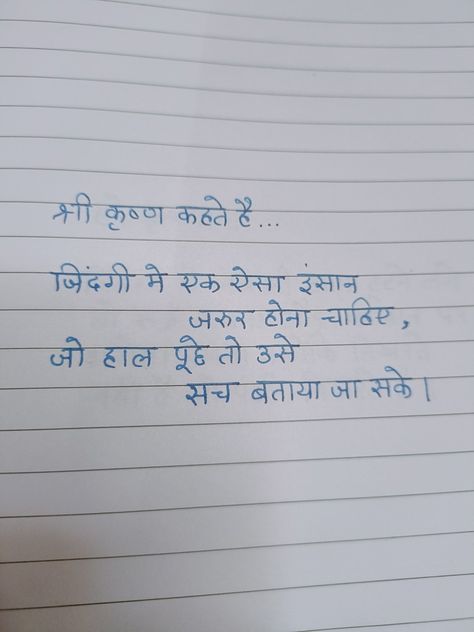 श्री कृष्ण कहते है...
जिंदगी मे एक ऐसा इंसान
जरुर होना चाहिए,
जो हाल पूछे तो उसे
सच बताया जा सके।